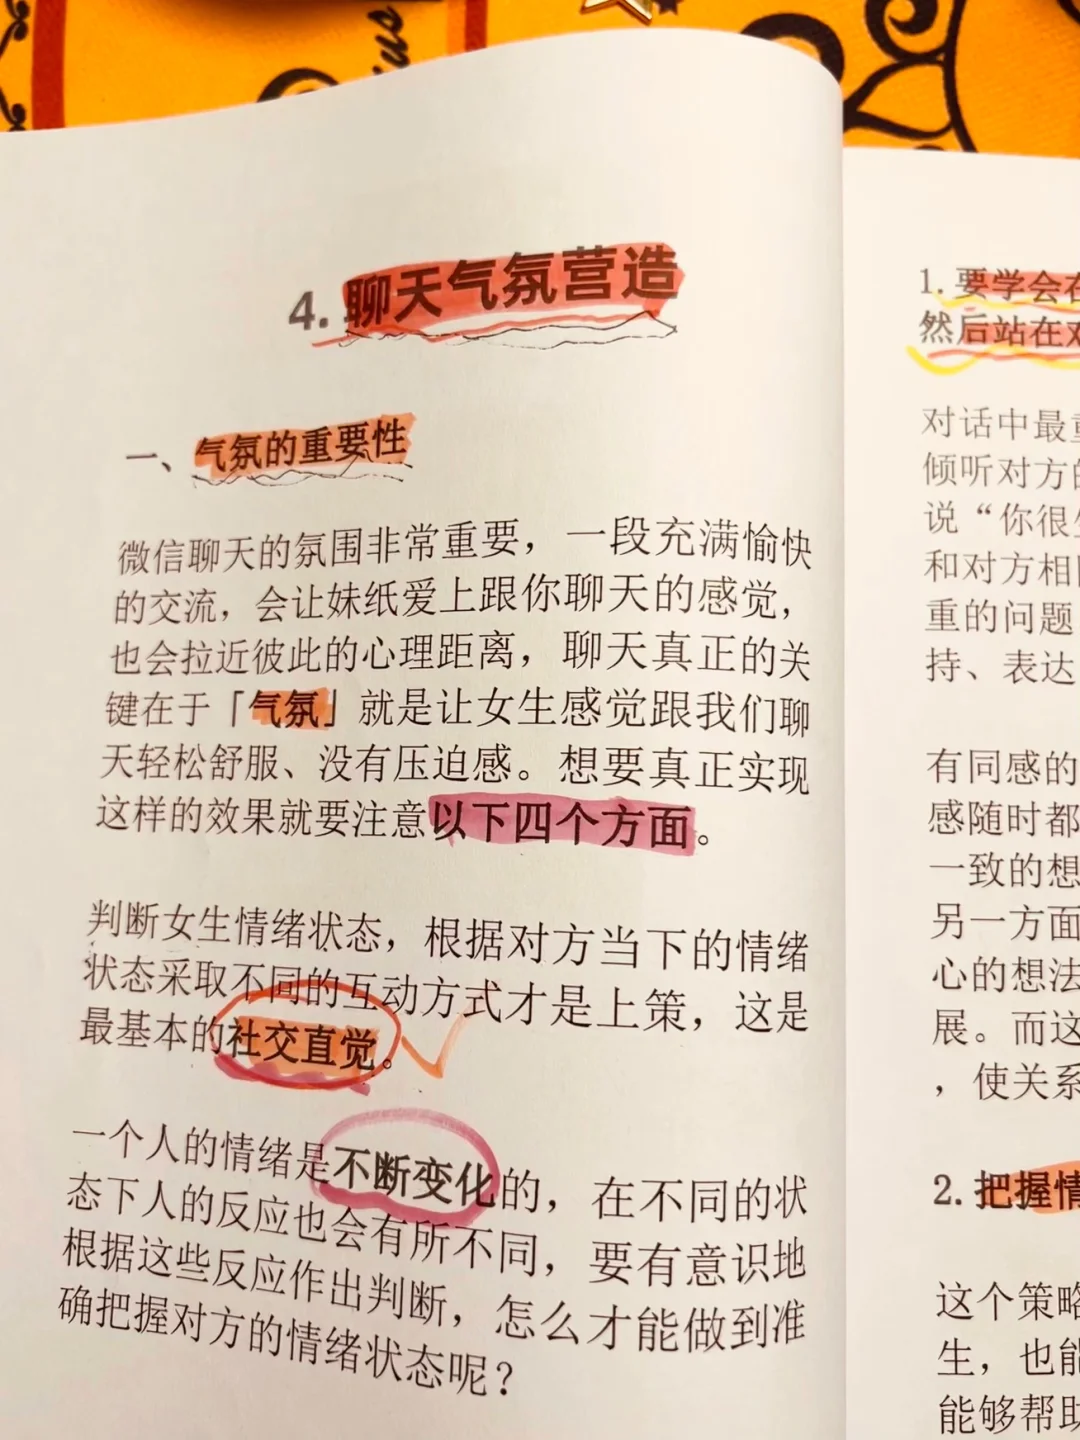 ius
4. 聊天气氛营造
一、气氛的重要性
微信聊天的氛围非常重要，一段充满愉快
的交流，会让妹纸爱上跟你聊天的感觉，
也会拉近彼此的心理距离，聊天真正的关
键在于「气氛」就是让女生感觉跟我们聊
天轻松舒服、没有压迫感。想要真正实现
这样的效果就要注意以下四个方面。
判断女生情绪状态，根据对方当下的情绪
状态采取不同的互动方式才是上策，这是
最基本的社交直觉。
一个人的情绪是不断变化的，在不同的状
态下人的反应也会有所不同，要有意识地
根据这些反应作出判断，怎么才能做到准
确把握对方的情绪状态呢？
1. 要学会在
然后站在对
对话中最重
倾听对方的
说“你很生
和对方相同
重的问题
持、表达
有同感的
感随时都
一致的想
另一方面
心的想法
展。而这
，使关系
2. 把握情
这个策略
生，也能
能够帮助